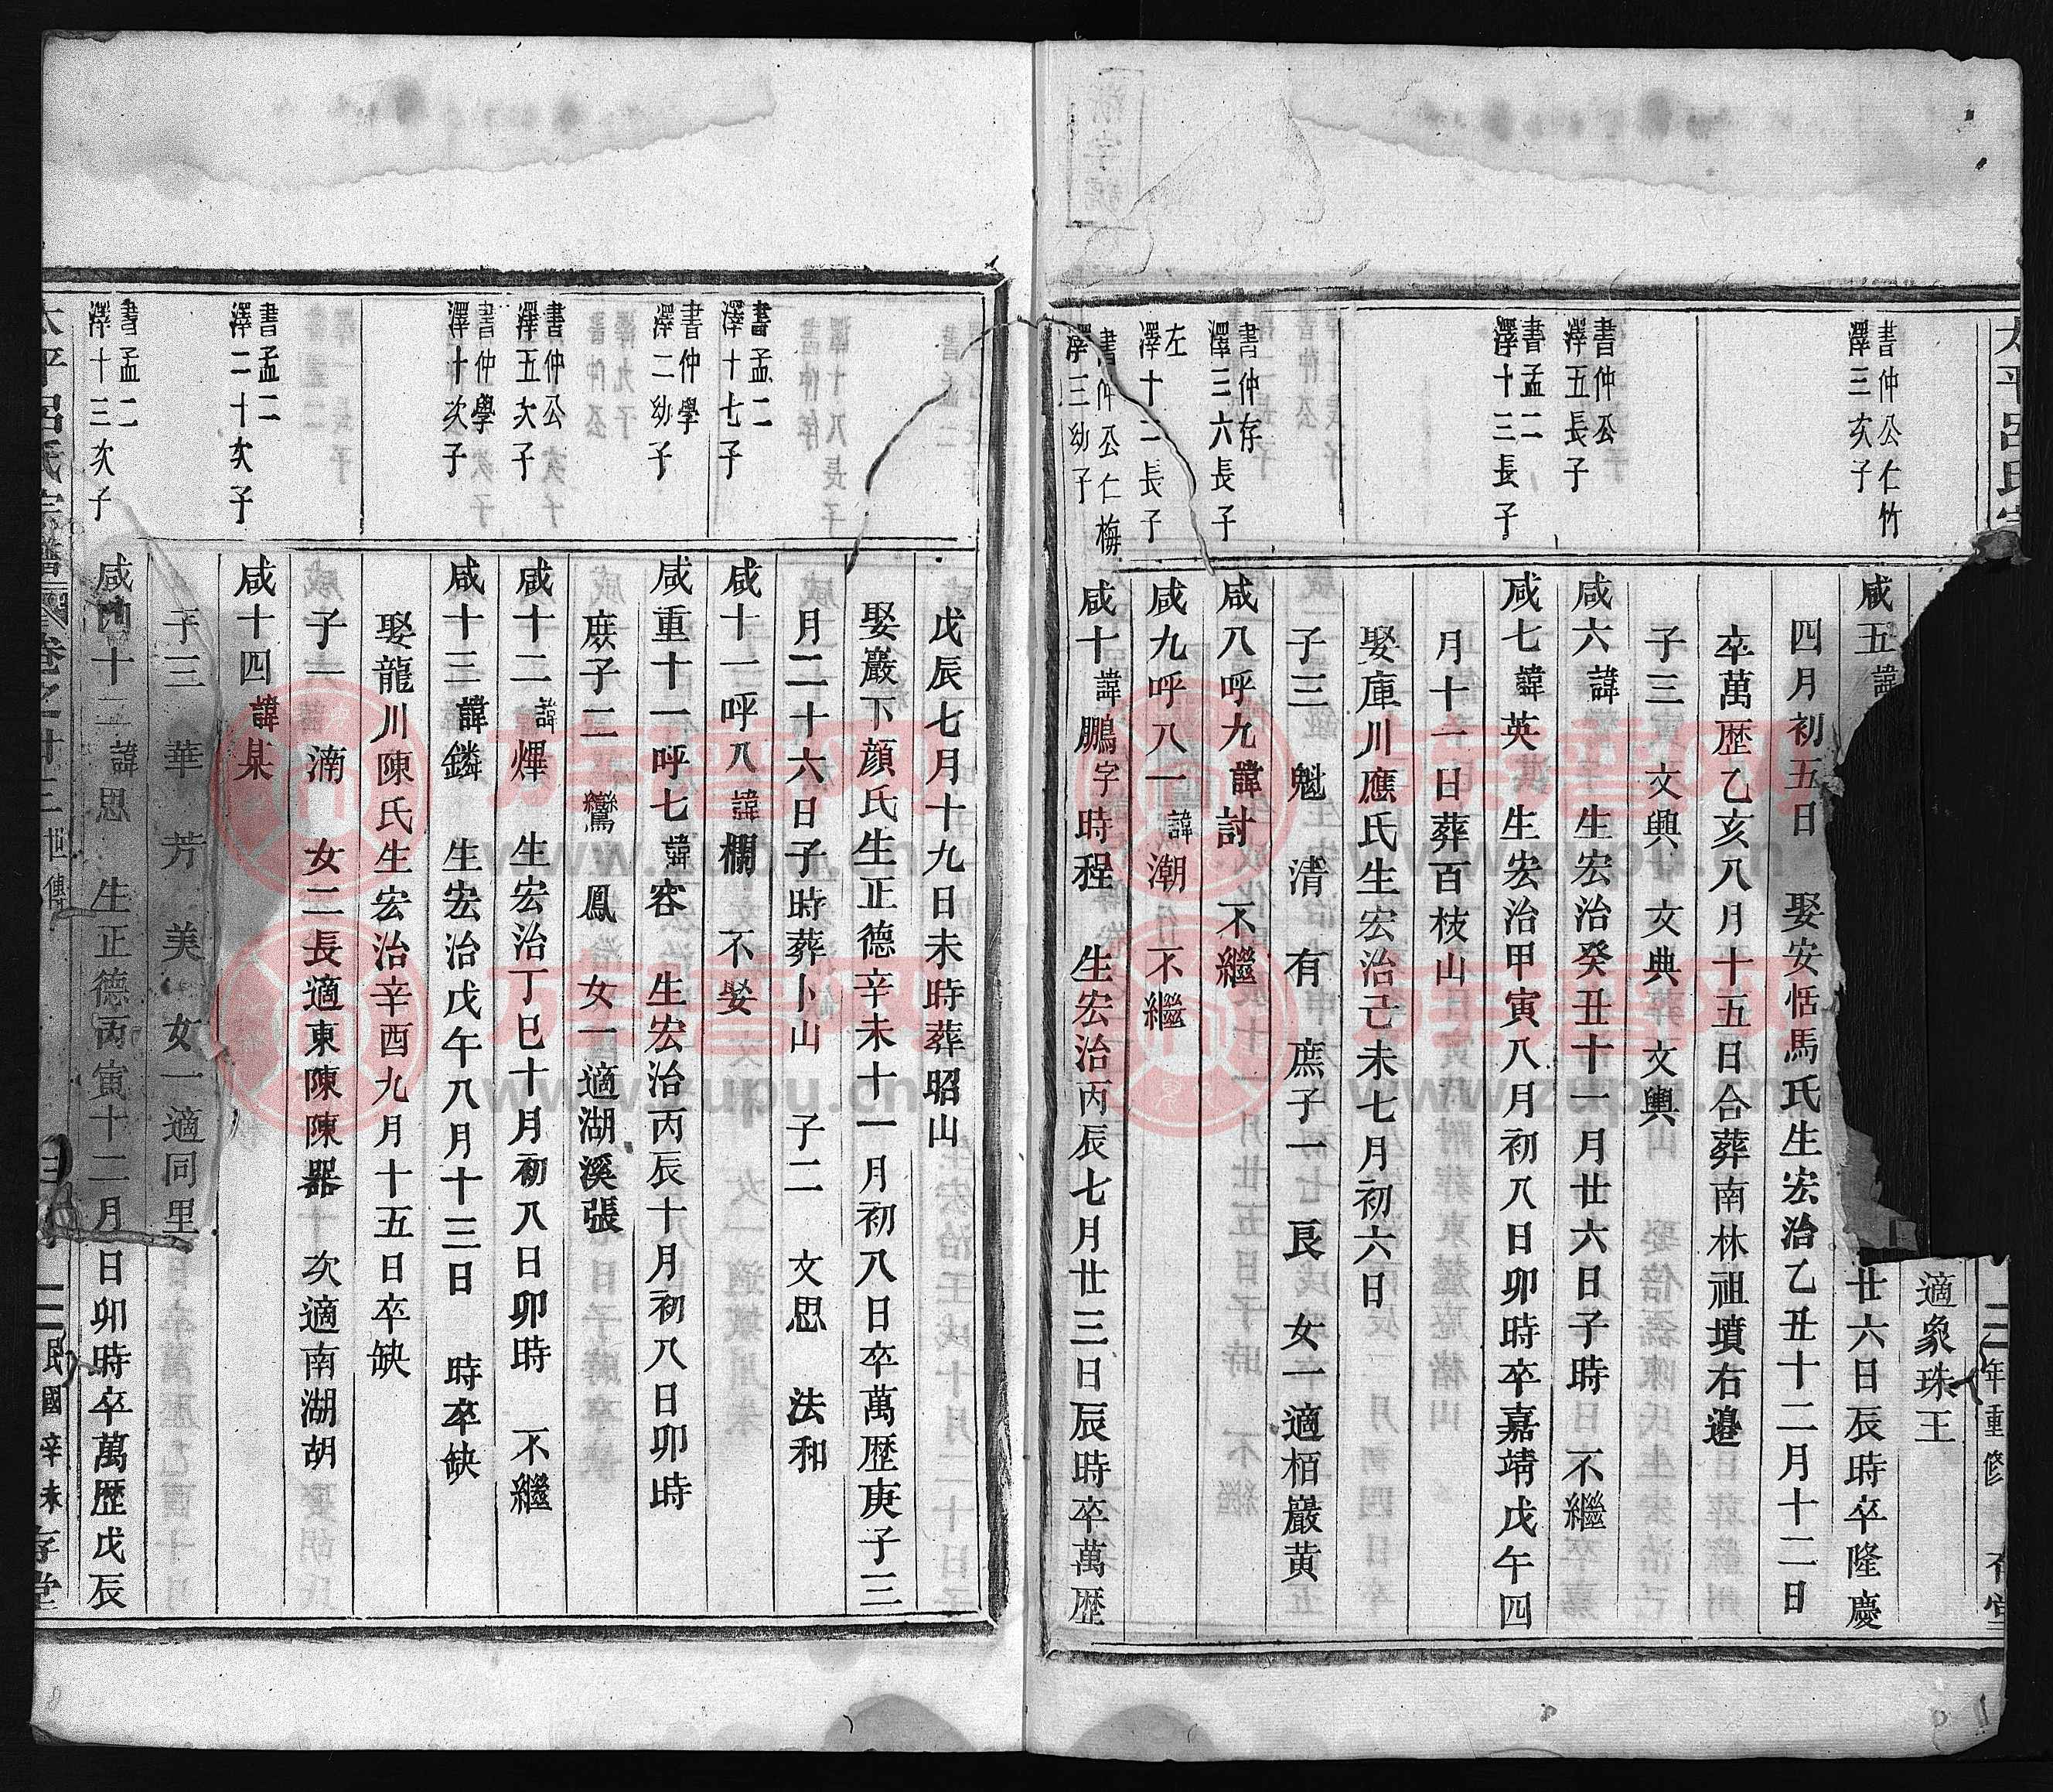 太平呂氏宗
三年重修
適象珠王
書仲公仁竹
澤三次子
咸五諱
廿六日辰時卒隆慶
四月初五日 娶安恬馬氏生宏治乙丑十二月十二日
卒萬歴乙亥八月十五日合葬南林祖墳右邉
子三 文興 文典 文輿
書仲公
澤五長子
咸六諱 生宏治癸丑十一月廿六日子時 不繼
書孟二
澤十三長子
咸七諱英 生宏治甲寅八月初八日卯時卒嘉靖戊午四
月十一日葬百枝山
娶庫川應氏生宏治己未七月初六日
子三 魁 清 有 庶子一 良 女一適栢巖黄
書仲存
澤三六長子
咸八呼九諱討 不繼
左
澤十二長子
咸九呼八一諱潮 不繼
書仲公仁梅
澤三幼子
咸十諱鵬字時程 生宏治丙辰七月廿三日辰時卒萬歴
戊辰七月十九日未時葬昭山
娶巖下顏氏生正德辛未十一月初八日卒萬歴庚子三
月二十六日子時葬卜山 子二 文思 法和
書孟二
澤十七子
咸十一呼八諱欄 不娶
書仲學
澤二幼子
咸重十一呼七諱容 生宏治丙辰十月初八日卯時
庶子二 鸞 鳳 女一適湖溪張
書仲公
澤五次子
咸十二諱燁 生宏治丁巳十月初八日卯時 不繼
書仲學
澤十次子
咸十三諱鏻 生宏治戊午八月十三日 時卒缺
娶龍川陳氏生宏治辛酉九月十五日卒缺
子一 滴 女二長適東陳陳器 次適南湖胡
書孟二
澤二十次子
咸十四諱杲
子三 華 芳 美 女一適同里
書孟二
澤十三次子
咸 十二諱思 生正德丙寅十二月 日卯時卒萬歴戊辰
太平呂氏宗譜 卷之廿三 世傳
民國辛未 存堂